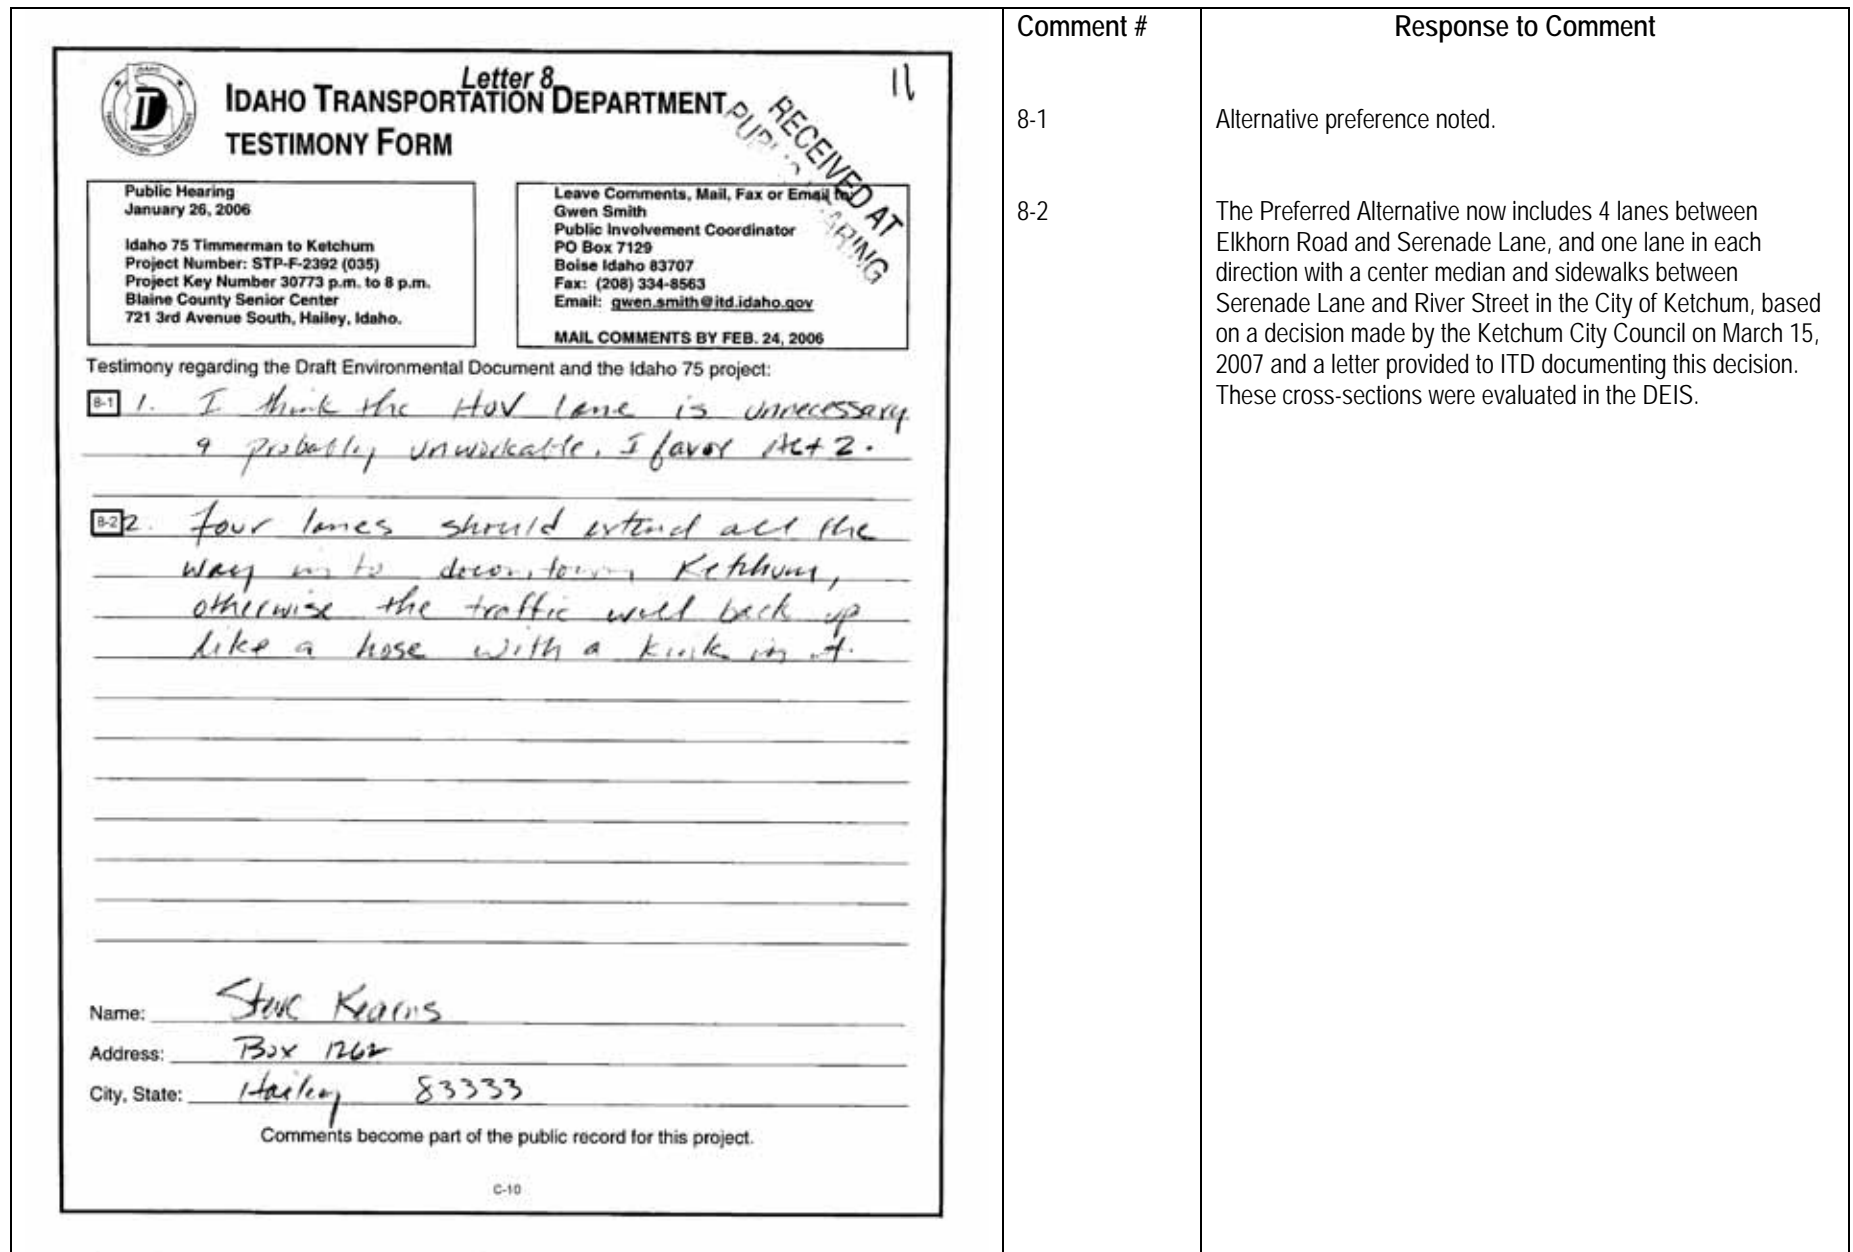 Comment #
Response to Comment
Letter 8
11
IDAHO TRANSPORTATION DEPARTMENT
TESTIMONY FORM
RECEIVED AT
PUBLIC HEARING
Public Hearing
January 26, 2006
Idaho 75 Timmerman to Ketchum
Project Number: STP-F-2392 (035)
Project Key Number 30773 p.m. to 8 p.m.
Blaine County Senior Center
721 3rd Avenue South, Hailey, Idaho.
Leave Comments, Mail, Fax or Email to
Gwen Smith
Public Involvement Coordinator
PO Box 7129
Boise Idaho 83707
Fax: (208) 334-8563
Email: gwen.smith@itd.idaho.gov
MAIL COMMENTS BY FEB. 24, 2006
Testimony regarding the Draft Environmental Document and the Idaho 75 project:
8-1 1. I think the HOV lane is unnecessary
& probably unworkable. I favor Alt 2.
8-2 2. four lanes should extend all the
way in to downtown Ketchum,
otherwise the traffic will back up
like a hose with a kink in it.
Name: Steve Kearns
Address: Box 1262
City, State: Hailey 83333
Comments become part of the public record for this project.
C-10
8-1
Alternative preference noted.
8-2
The Preferred Alternative now includes 4 lanes between
Elkhorn Road and Serenade Lane, and one lane in each
direction with a center median and sidewalks between
Serenade Lane and River Street in the City of Ketchum, based
on a decision made by the Ketchum City Council on March 15,
2007 and a letter provided to ITD documenting this decision.
These cross-sections were evaluated in the DEIS.